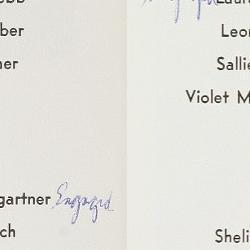 ber
ner
gartner Engaged
ch
Leo
Sallie
Violet M
Sheli